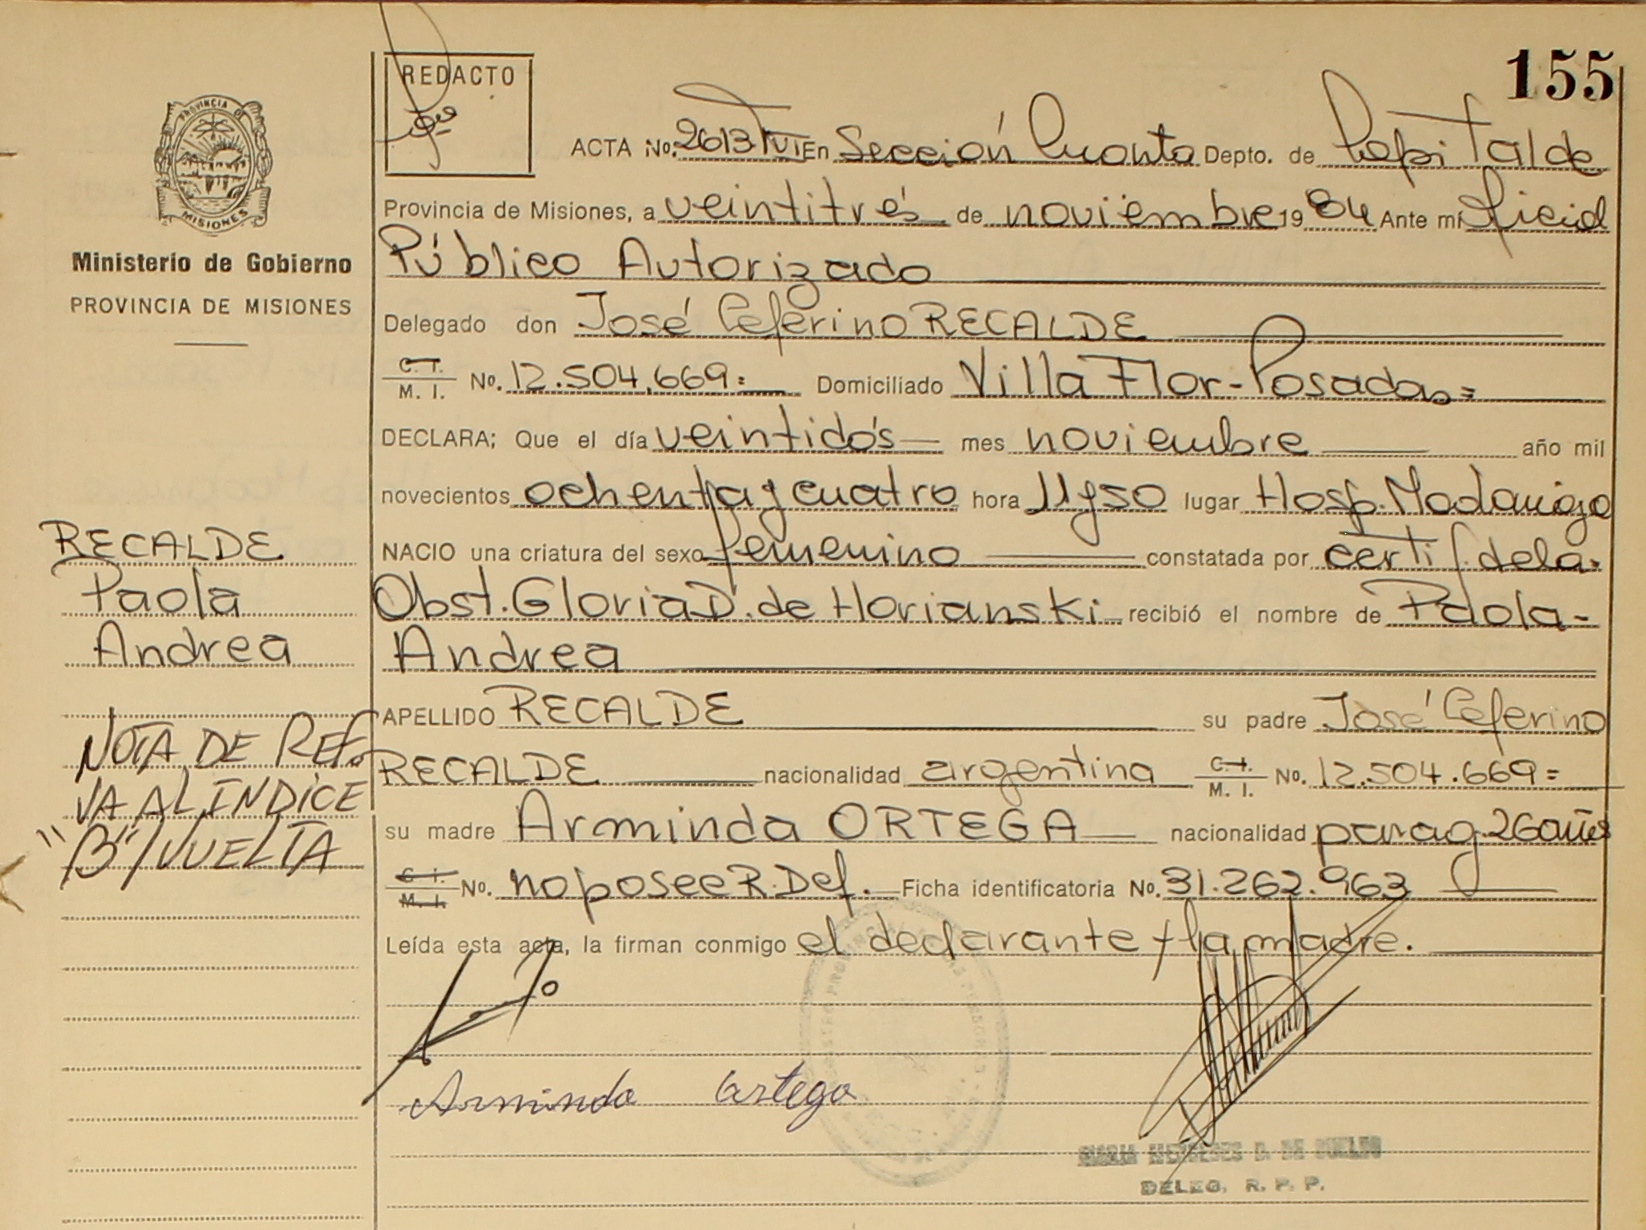 155
REDACTO
PROVINCIA DE
MISIONES
ACTA No. 2613 TVI En Sección Cuarta Depto. de Capital de
Provincia de Misiones, a veintitrés de noviembre 19 84 Ante mí Oficial
Público Autorizado
Delegado don José Ceferino RECALDE
C. I. M. I. No. 12.504.669= Domiciliado Villa Flor-Posadas=
DECLARA; Que el día veintidós mes noviembre año mil
novecientos ochenta y cuatro hora 11y50 lugar Hosp. Madariaga
NACIO una criatura del sexo femenino constatada por certif. de la.
Obst. Gloria D. de Horianski recibió el nombre de Paola-
Andrea
APELLIDO RECALDE su padre José Ceferino
RECALDE nacionalidad argentina C. I. M. I. No. 12.504.669=
su madre Arminda ORTEGA nacionalidad parag. 26 años
C. I. M. I. No. no posee R. Def. Ficha identificatoria No. 31.262.963
Leída esta acta, la firman conmigo el declarante y la madre.
Arminda Ortega
DELEG. R. P. P.
Ministerio de Gobierno
PROVINCIA DE MISIONES
RECALDE
Paola
Andrea
NOTA DE REF.
VA AL INDICE
"B"/VUELTA